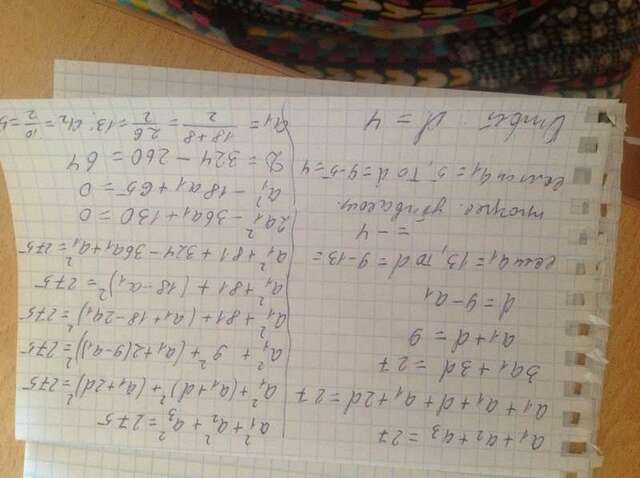 a₁ + a₂ + a₃ = 27
a₁ + a₁ + d + a₁ + 2d = 27
3a₁ + 3d = 27
a₁ + d = 9
d = 9 - a₁
если a₁ = 13, то d = 9 - 13 =
= -4
прогрес. убывающ.
если a₁ = 5, то d = 9 - 5 = 4
Ответ d = 4
a₁² + a₂² + a₃² = 275
a₁² + (a₁ + d)² + (a₁ + 2d)² = 275
a₁² + 9² + (a₁ + 2(9 - a₁))² = 275
a₁² + 81 + (a₁ + 18 - 2a₁)² = 275
a₁² + 81 + (18 - a₁)² = 275
a₁² + 81 + 324 - 36a₁ + a₁² = 275
2a₁² - 36a₁ + 130 = 0
a₁² - 18a₁ + 65 = 0
D = 324 - 260 = 64
a₁ = (18 + 8)/2 = 26/2 = 13; a₂ = 10/2 = 5